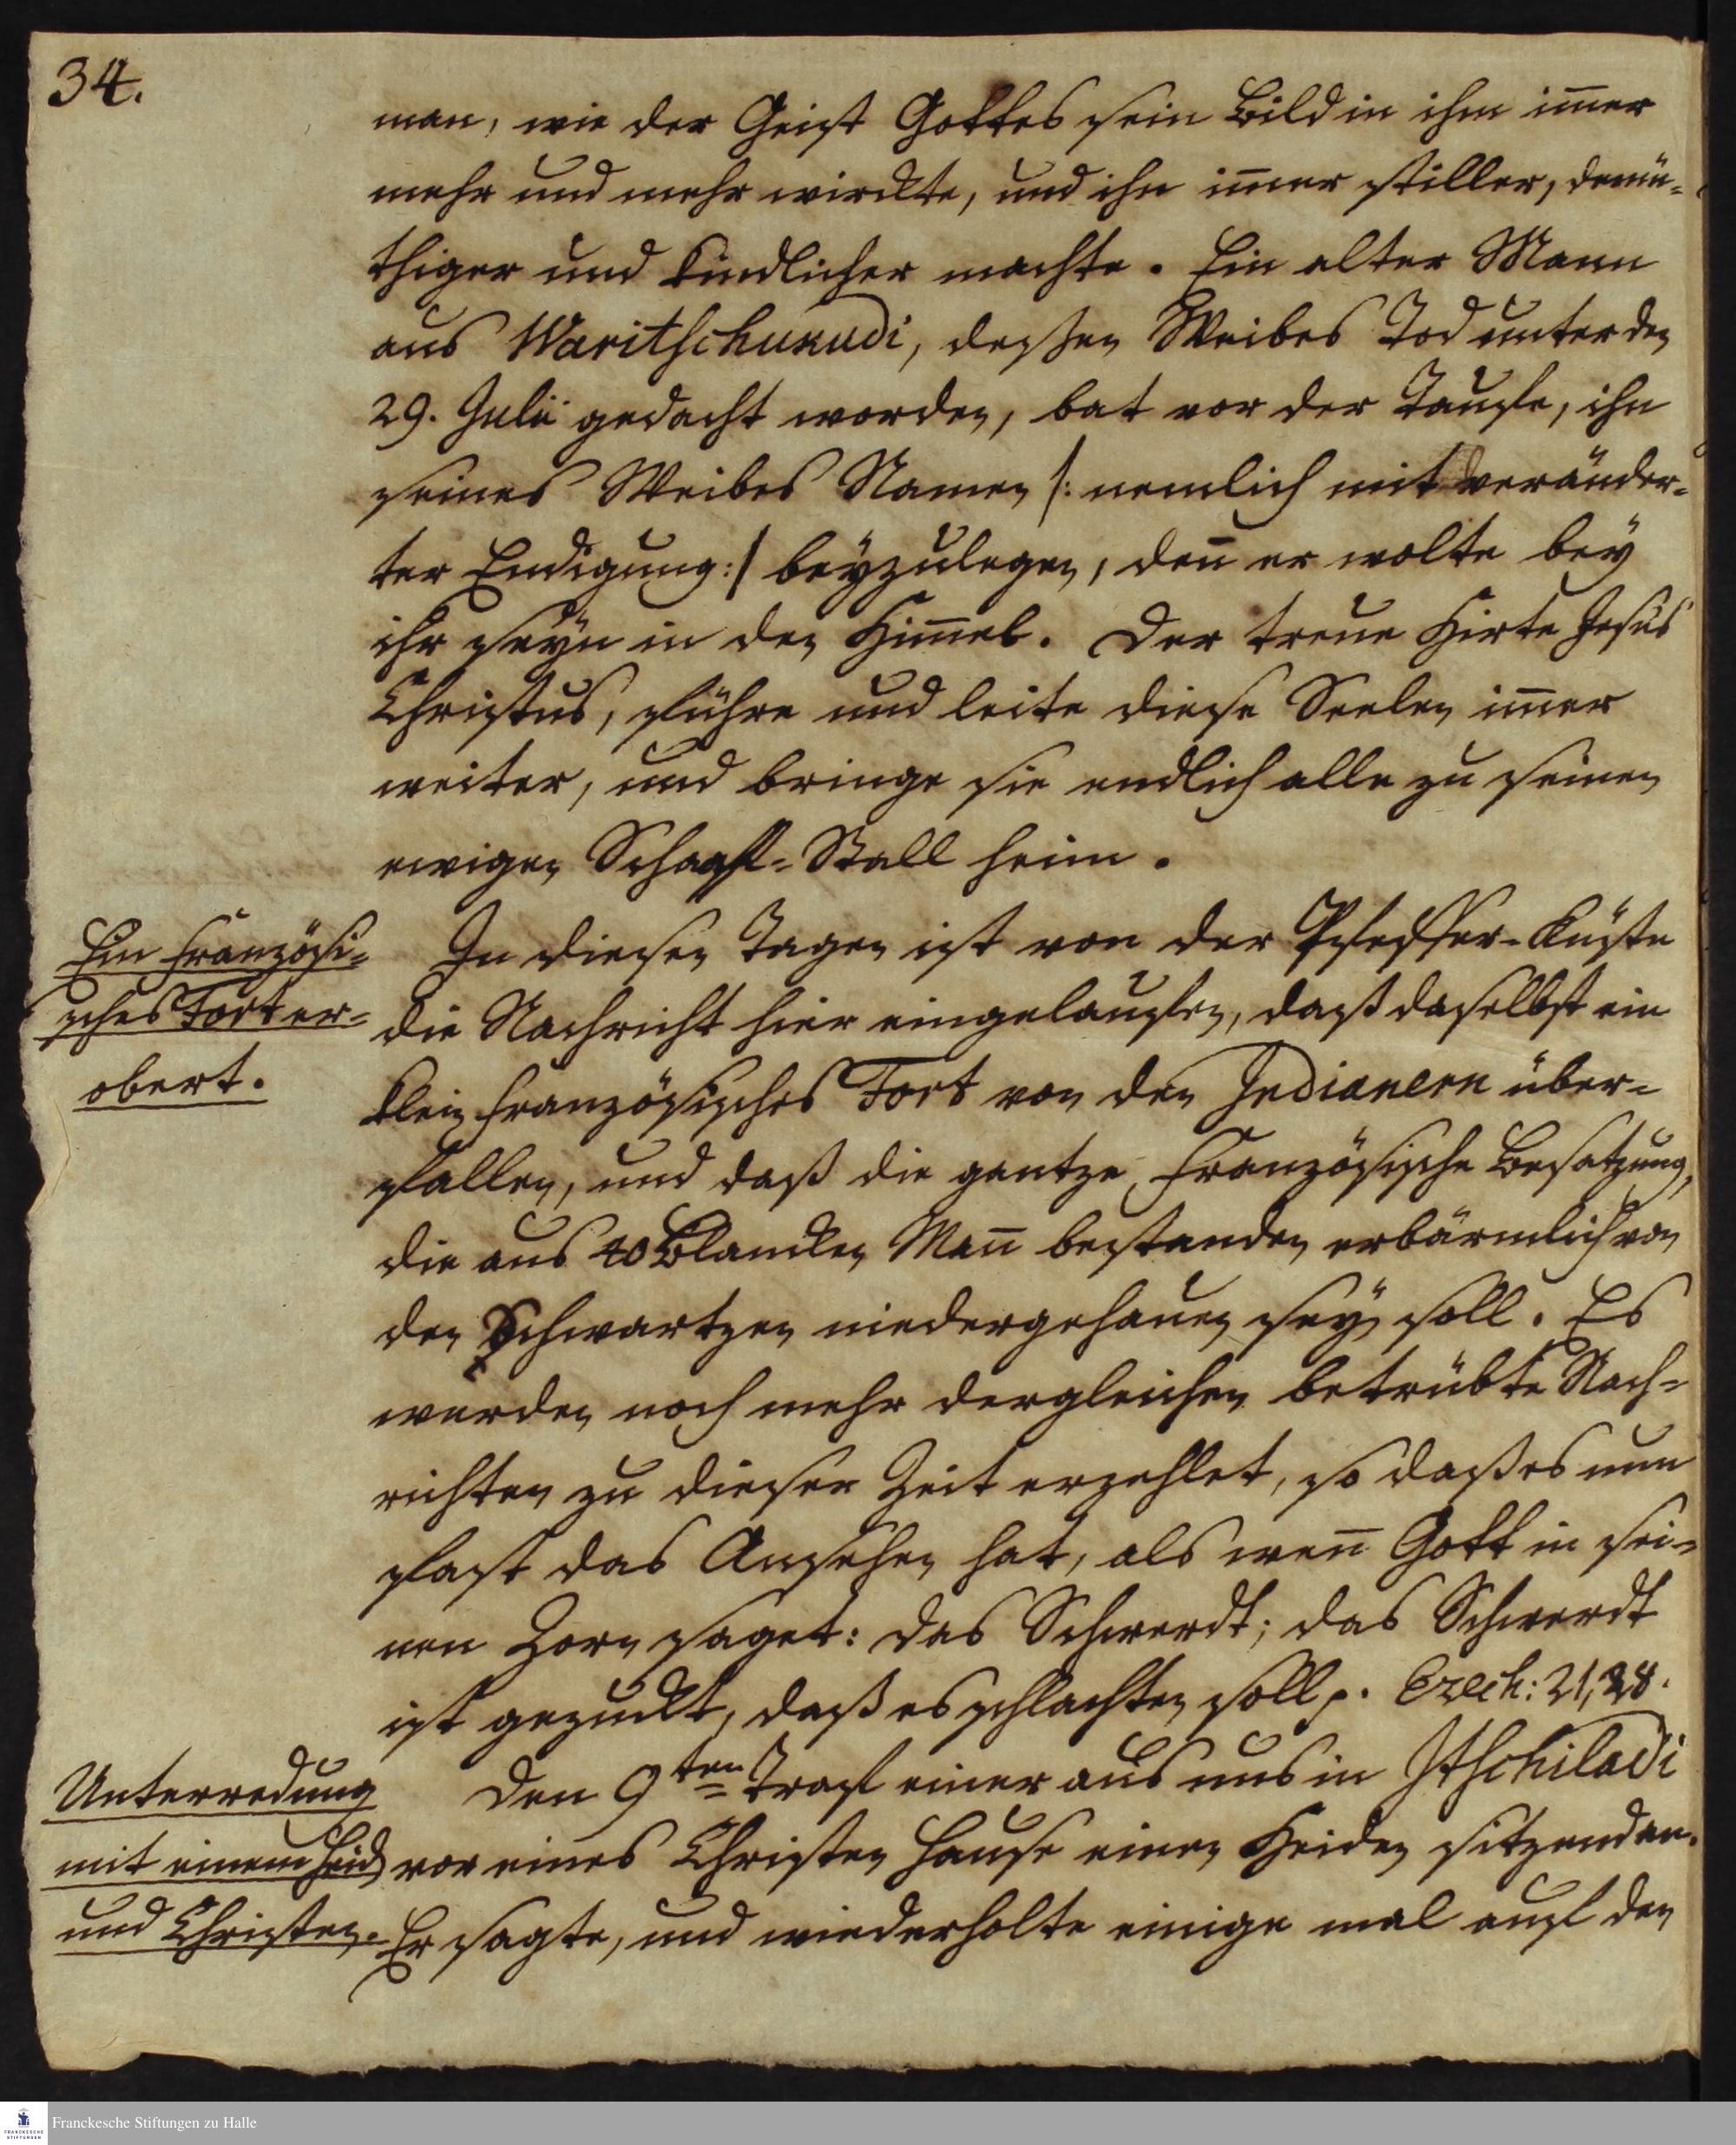 34.
man, wie der Geist Gottes sein Bild in ihm im̄er
mehr und mehr wirckte, und ihn im̄er stiller, demü-
thiger und kindlicher machte. Ein alter Mann
aus Waritschukudi, deßen Weibes Tod unter den
29. Julii gedacht worden, bat vor der Tauffe, ihn
seines Weibes Namen /: nemlich mit veränder-
ter Endigung :/ beyzulegen, den̄ er wolte bey
ihr seyn in den Him̄el. Der treue Hirte Jesus
Christus, führe und leite diese Seelen im̄er
weiter, und bringe sie endlich alle zu seinen
ewigen Schaaf-Stall heim.
Ein Französi-
sches Fort er-
obert.
In diesen Tagen ist von der Pfeffer-Küste
die Nachricht hier eingelauffen, daß daselbst ein
klein französisches Fort von den Indianern über-
fallen, und daß die gantze Französische Besatzung,
die aus 40 Blancken Man̄ bestanden erbärmlich von
den Schwartzen niedergehauen seyn soll. Es
wurden noch mehr dergleichen betrübte Nach-
richten zu dieser Zeit erzehlet, so daß es nun
fast das Ansehen hat, als wen̄ Gott in sei-
nen Zorn saget: das Schwerdt; das Schwerdt
ist gezückt, daß es schlachten soll p. Ezech: 21, 28.
Unterredung
mit einem Heid
und Christen.
Den 9ten Traf einer aus uns in Itschiladi
vor eines Christen Hause einen Heiden sitzend an.
Er sagte, und wiederholte einige mal auf den
Franckesche Stiftungen zu Halle
FRANCKESCHE
STIFTUNGEN